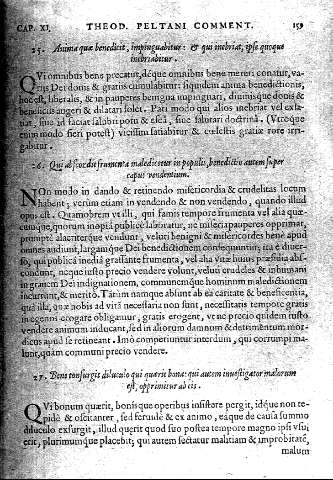 CAP. XI. THEOD. PELTANI COMMENT. 159
25. Anima quæ benedicit, impinguabitur: & qui inebriat, ipse quoque
inebriabitur.
QVi omnibus bene precatur, déque omnibus bene mereri conatur, va-
riis Dei donis & gratiis cumulabitur: siquidem anima benedictionis,
hoc est, liberalis, & in pauperes benigna impinguari, diuinisque donis &
beneficiis augeri & dilatari solet. Pari modo qui alios inebriat vel exsa-
tiat, siue id faciat salubri potu & esca, siue salutari doctrina. (Vtroque
enim modo fieri potest) vicissim satiabitur & cælestis gratiæ rore irri-
gabitur.
26. Qui abscondit frumenta maledicetur in populis, benedictio autem super
caput vendentium.
NOn modo in dando & retinendo misericordia & crudelitas locum
habent; verùm etiam in vendendo & non vendendo, quando illud
opus est. Quamobrem vt illi, qui famis tempore frumenta vel alia quæ-
cunque, quorum inopia publicè laboratur, ne miseri pauperes opprimantur,
promptè alacriterque vendunt, veluti benigni & misericordes bene apud
omnes audiunt, largámque Dei benedictionem consequuntur; ita è diuer-
so, qui publica inedia grassante frumenta, vel alia vitæ huius præsidia abs-
condunt, neque iusto precio vendere volunt, veluti crudeles & inhumani
in grauem Dei indignationem, communemque hominum maledictionem
incurrunt, & meritò. Tantùm namque absunt ab ea caritate & beneficentia,
qua illi, quæ nobis ad vitã necessaria non sunt, necessitatis tempore gratis
indigenti erogare obligamur, gratis erogent, vt ne precio quidem iusto
vendere animum inducant, sed in aliorum damnum & detrimentum mor-
dicus apud se retineant. Imò comperiuntur interdum, qui corrumpi ma-
lunt, quàm communi precio vendere.
27. Bene consurgit diluculo qui quærit bona: qui autem inuestigator malorum
est, opprimetur ab eis.
QVi bonum quærit, bonisque operibus insistere pergit, idque non te-
pidè & oscitanter, sed feruidè & ex animo, eaque de causa summo
diluculo exsurgit, illud quærit quod suo postea tempore magno ipsi vsui
erit, plurimúmque placebit; qui autem sectatur malitiam & improbitatē,
malum